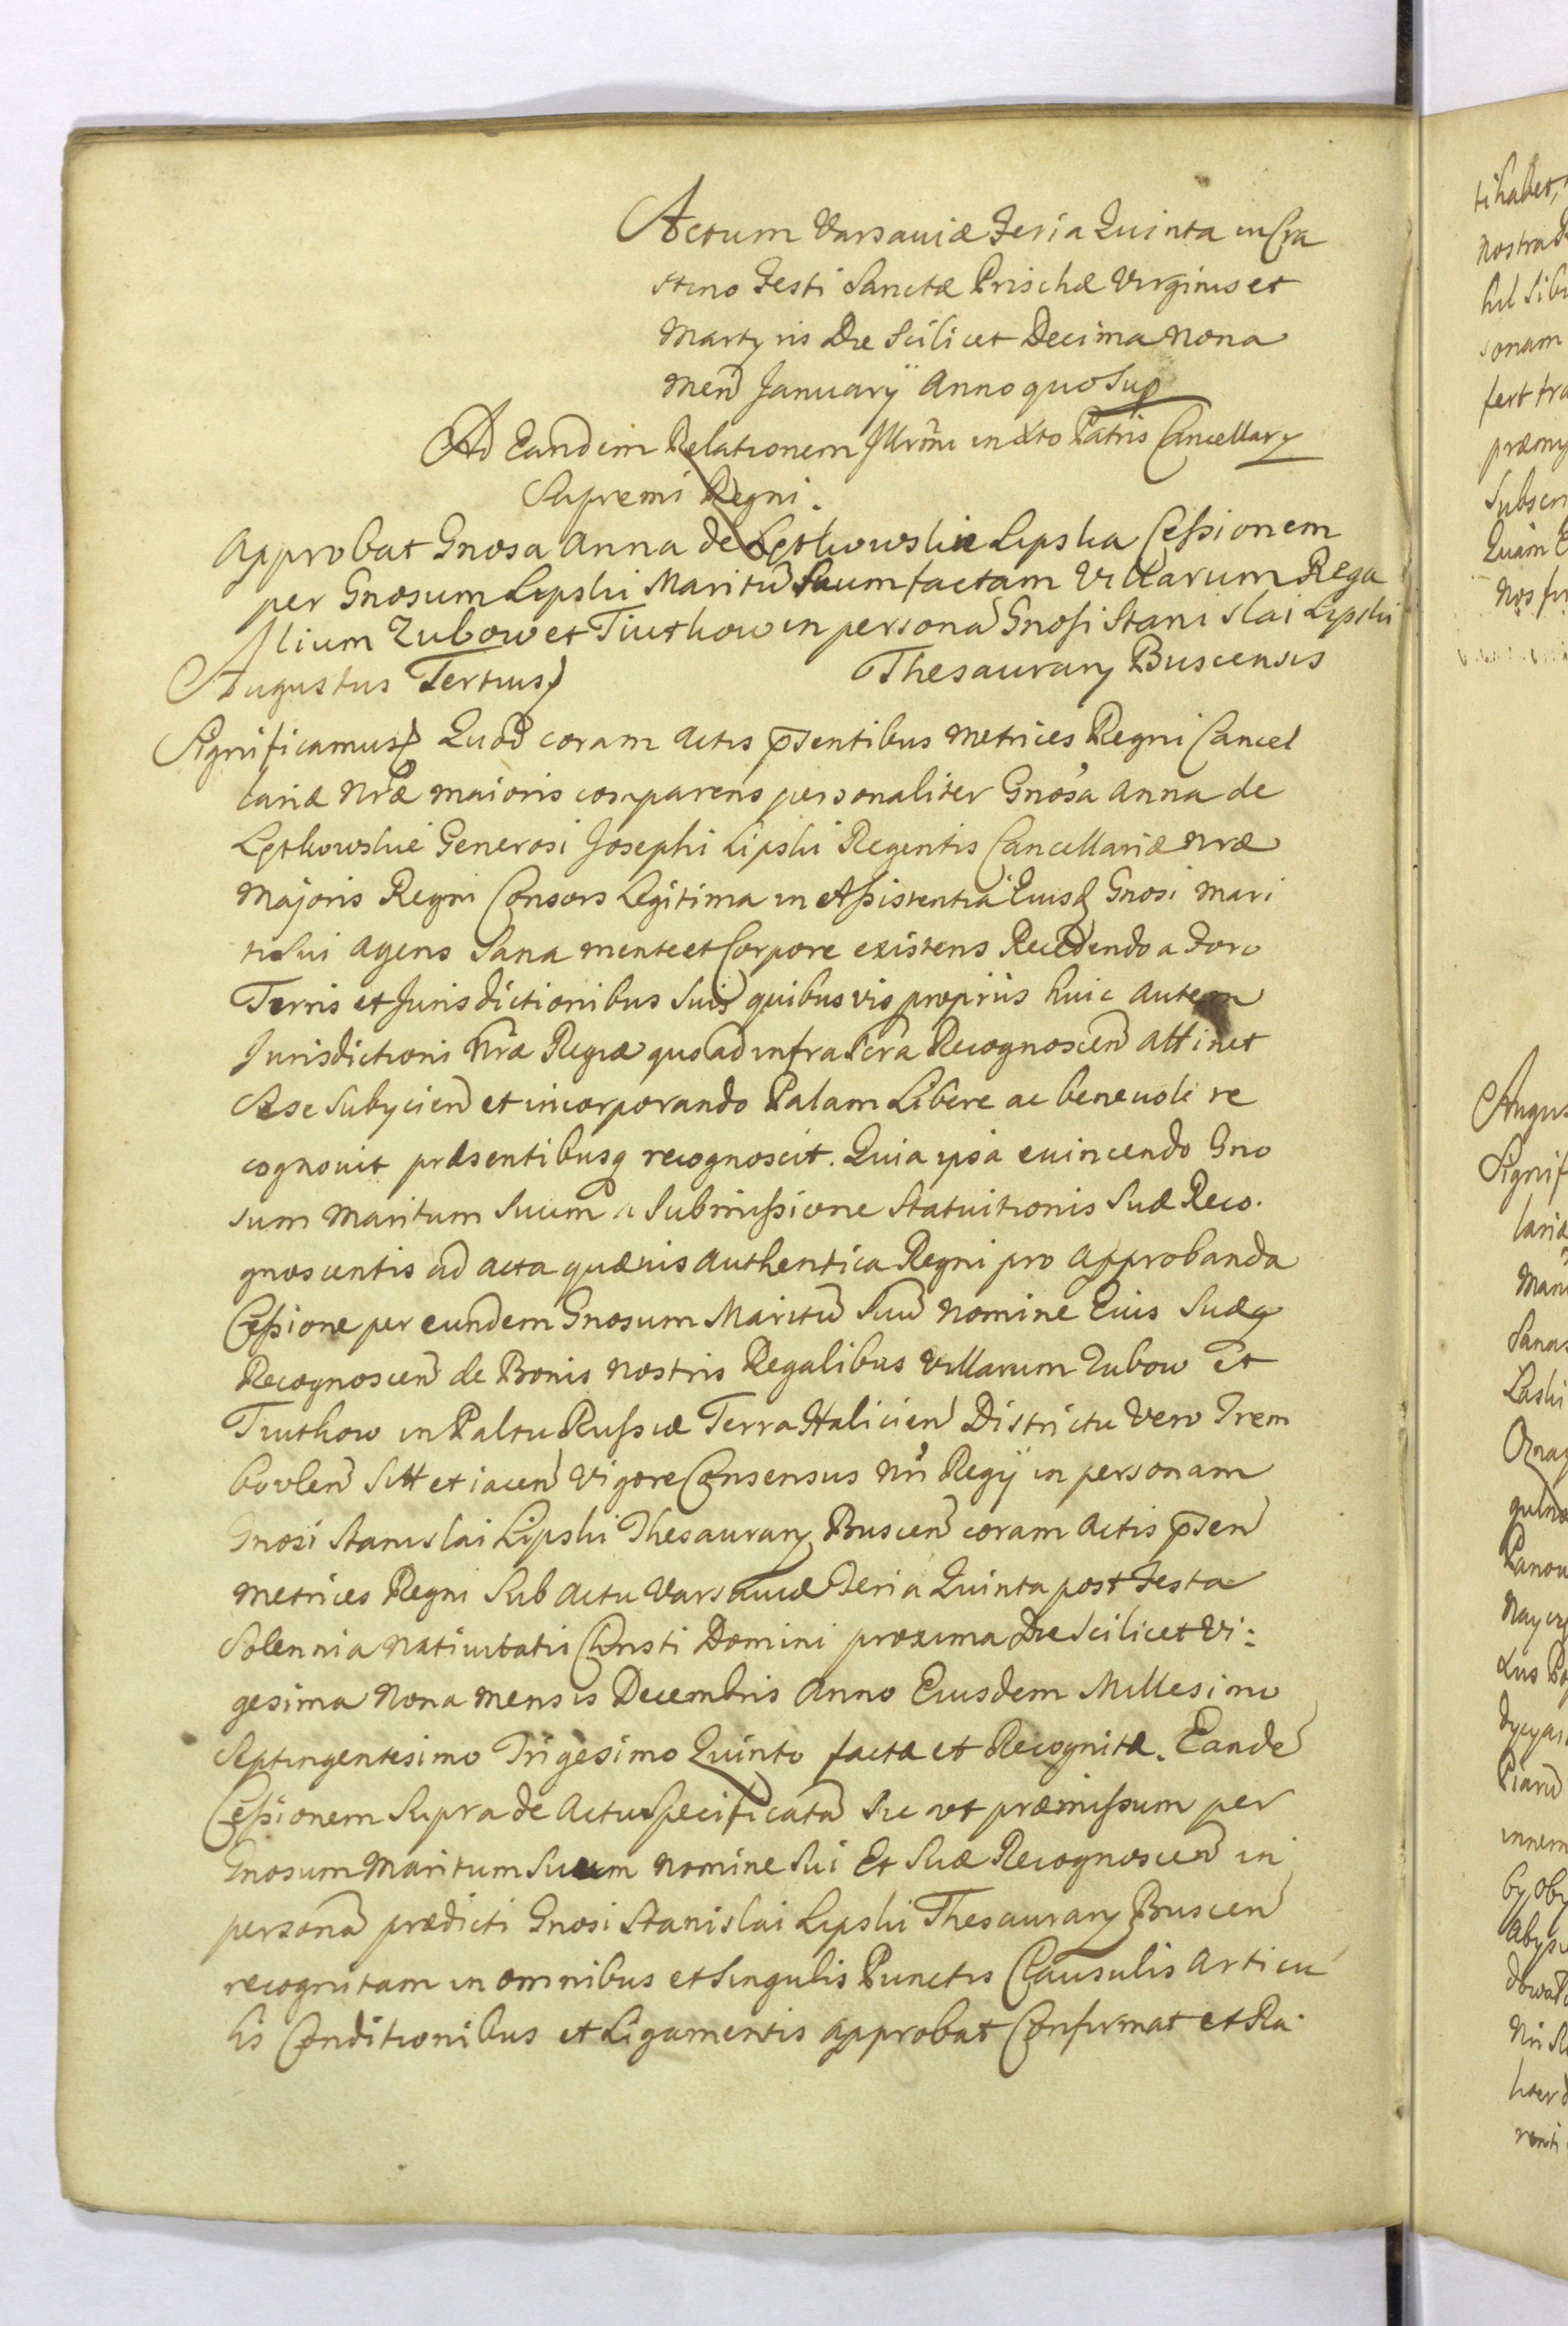 Actum Varsaviæ Feria Quinta in Cra
stino Festi Sanctæ Prischæ Virginis et
Martyris Die Scilicet Decima Nona
Men̄ Januarÿ Anno quo Sup̱
Ad Eandem Relationem Illrm̄i in Xto Patris Cancellary
Supremi Regni.
Approbat Gnosa Anna de Lętkowskie Lipska Cessionem
per Gnosum Lipski Maritū Suum factam Villarum Rega
lium Zubow et Tiutkow in personā Gnosi Stanislai Lipski
Thesaurary Buscensis
Augustus Tertius
Significamus Quod coram Actis p̄sentibus Metrices Regni Cancel
lariæ Nræ maioris comparens personaliter Gnosa Anna de
Lętkowskie Generosi Josephi Lipski Regentis Cancellariæ Nræ
Majoris Regni Consors Legitima in Assistentia Eiusd Gnosi Mari
ti Sui agens Sana mente et Corpore existens Recedendo a Foro
Terris et Jurisdictionibus Suis quibusvis propriis huic autem
Jurisdictioni Nræ Regiæ quo ad infra Scra Recognoscen̄ attinet
Sese Subycien̄ et incorporando Palam Libere ac benevole re
cognovit præsentibusq recognoscit. Quia ipsa evincendo Gno
sum Maritum Suum a Submissione Statuitionis Suæ Reco.
gnoscentis ad acta quævis Authentica Regni pro Approbanda
Cessione per eundem Gnosum Maritū Suū Nomine Eius Suæq
Recognoscen̄ de Bonis Nostris Regalibus Villarum Zubow Et
Tiutkow in Paltu Russiæ Terra Halicien̄ Districtu Vero Trem
bovlen̄ Sitt et iacen̄ Vigore Consensus Nri Regÿ in personam
Gnosi Stanislai Lipski Thesaurary Buscen̄ coram Actis p̄sen̄
Metrices Regni Sub Actu Varsaviæ Feria Quinta post Festa
Solennia Nativitatis Christi Domini proxima Die Scilicet Vi:
gesima Nona Mensis Decembris Anno Eiusdem Millesimo
Septingentesimo Trigesimo Quinto factæ et Recognitæ. Eandē
Cessionem Supra de Actu Specificatā Sic ut præmissum per
Gnosum Maritum Suum Nomine Sui Et Suæ Recognoscen̄ in
personā prædicti Gnosi Stanislai Lipski Thesaurary Buscen̄
recognitam in omnibus et Singulis Punctis Clausulis Articu
lis Conditionibus et Ligamentis approbat Confirmat et Ra.